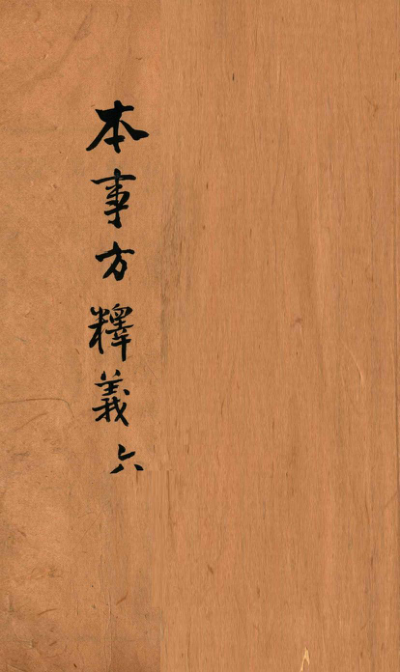 本事方釋義六